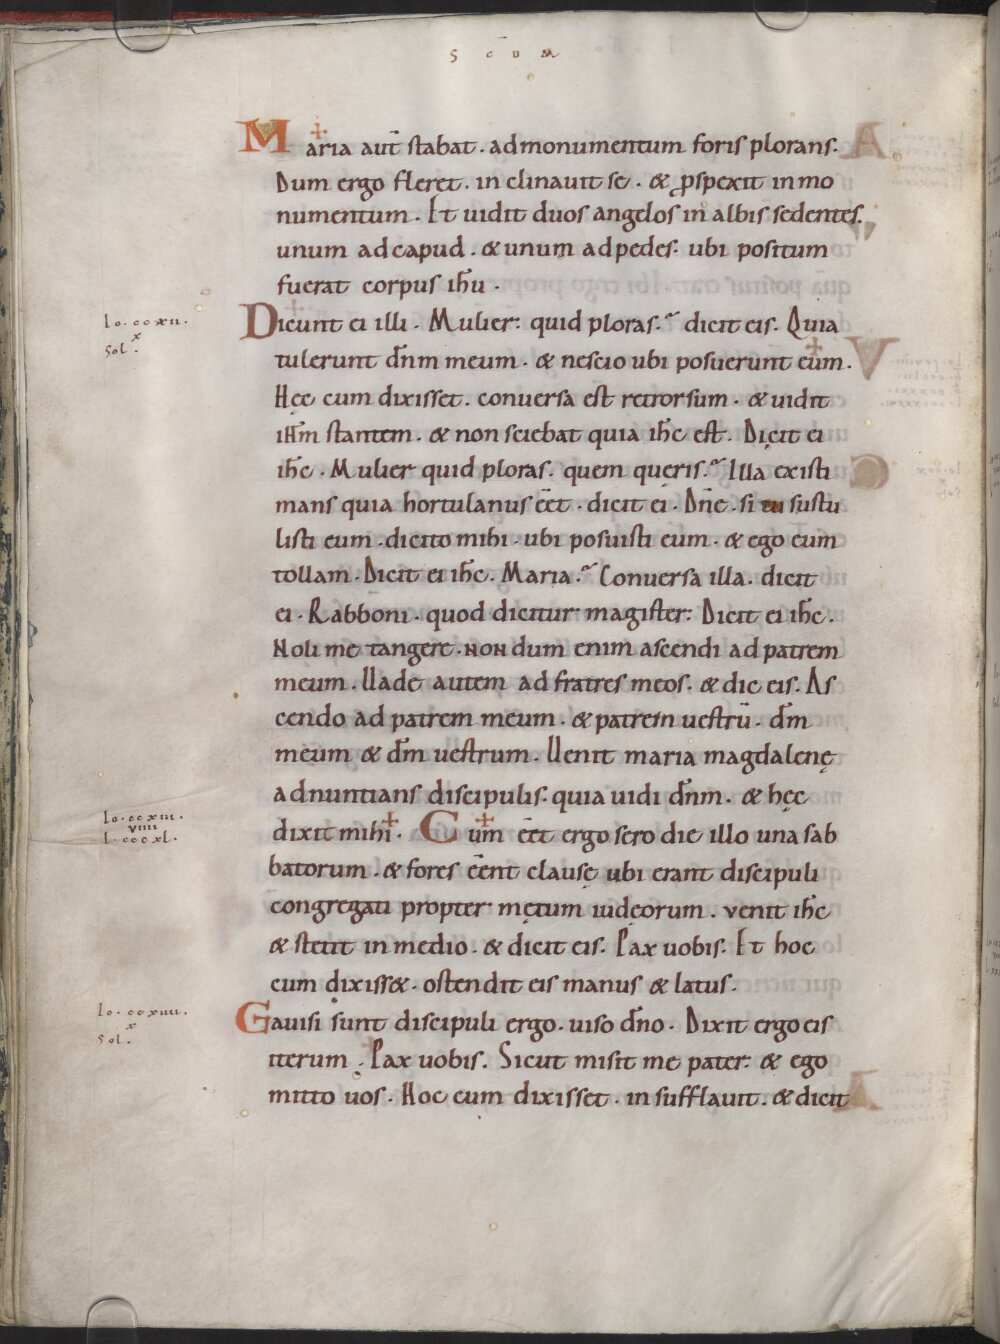 S C D M
Maria aut̄ stabat . ad monumentum foris plorans.
Dum ergo fleret . in clinauit se . & ꝓspexit in mo
numentum . Et uidit duos angelos in albis sedentes.
unum ad capud . & unum ad pedes . ubi positum
fuerat corpus ih̄u .
Io . ccxii .
x
Sol .
Dicunt ei illi . Mulier : quid ploras . dicit eis . Quia
tulerunt dn̄m meum . & nescio ubi posuerunt eum .
Hęc cum dixisset . conuersa est retrorsum . & uidit
ih̄m stantem . & non sciebat quia ih̄c est . Dicit ei
ih̄c . Mulier quid ploras . quem queris . Illa existi
mans quia hortulanus eēt . dicit ei . Dn̄e . si tu sustu
listi eum . dicito mihi . ubi posuisti eum . & ego eum
tollam . Dicit ei ih̄c . Maria . Conuersa illa . dicit
ei . Rabboni . quod dicitur magister . Dicit ei ih̄c .
Noli me tangere . non dum enim ascendi ad patrem
meum . Uade autem ad fratres meos . & dic eis . As
cendo ad patrem meum . & patrem uestrū . dm̄
meum & dm̄ uestrum . Uenit maria magdalenę
adnuntians discipulis . quia uidi dn̄m . & hęc
Io . ccxiii .
viiii
L . cccxl .
dixit mihi . Cum eēt ergo sero die illo una sab
batorum . & fores eēnt clausę ubi erant discipuli
congregati propter metum iudeorum . venit ih̄c
& stetit in medio . & dicit eis . Pax uobis . Et hoc
cum dixiss& . ostendit eis manus & latus .
Io . ccxiiii .
x
Sol .
Gauisi sunt discipuli ergo . uiso dn̄o . Dixit ergo eis
iterum . Pax uobis . Sicut misit me pater : & ego
mitto uos . Hoc cum dixisset . in sufflauit . & dicit